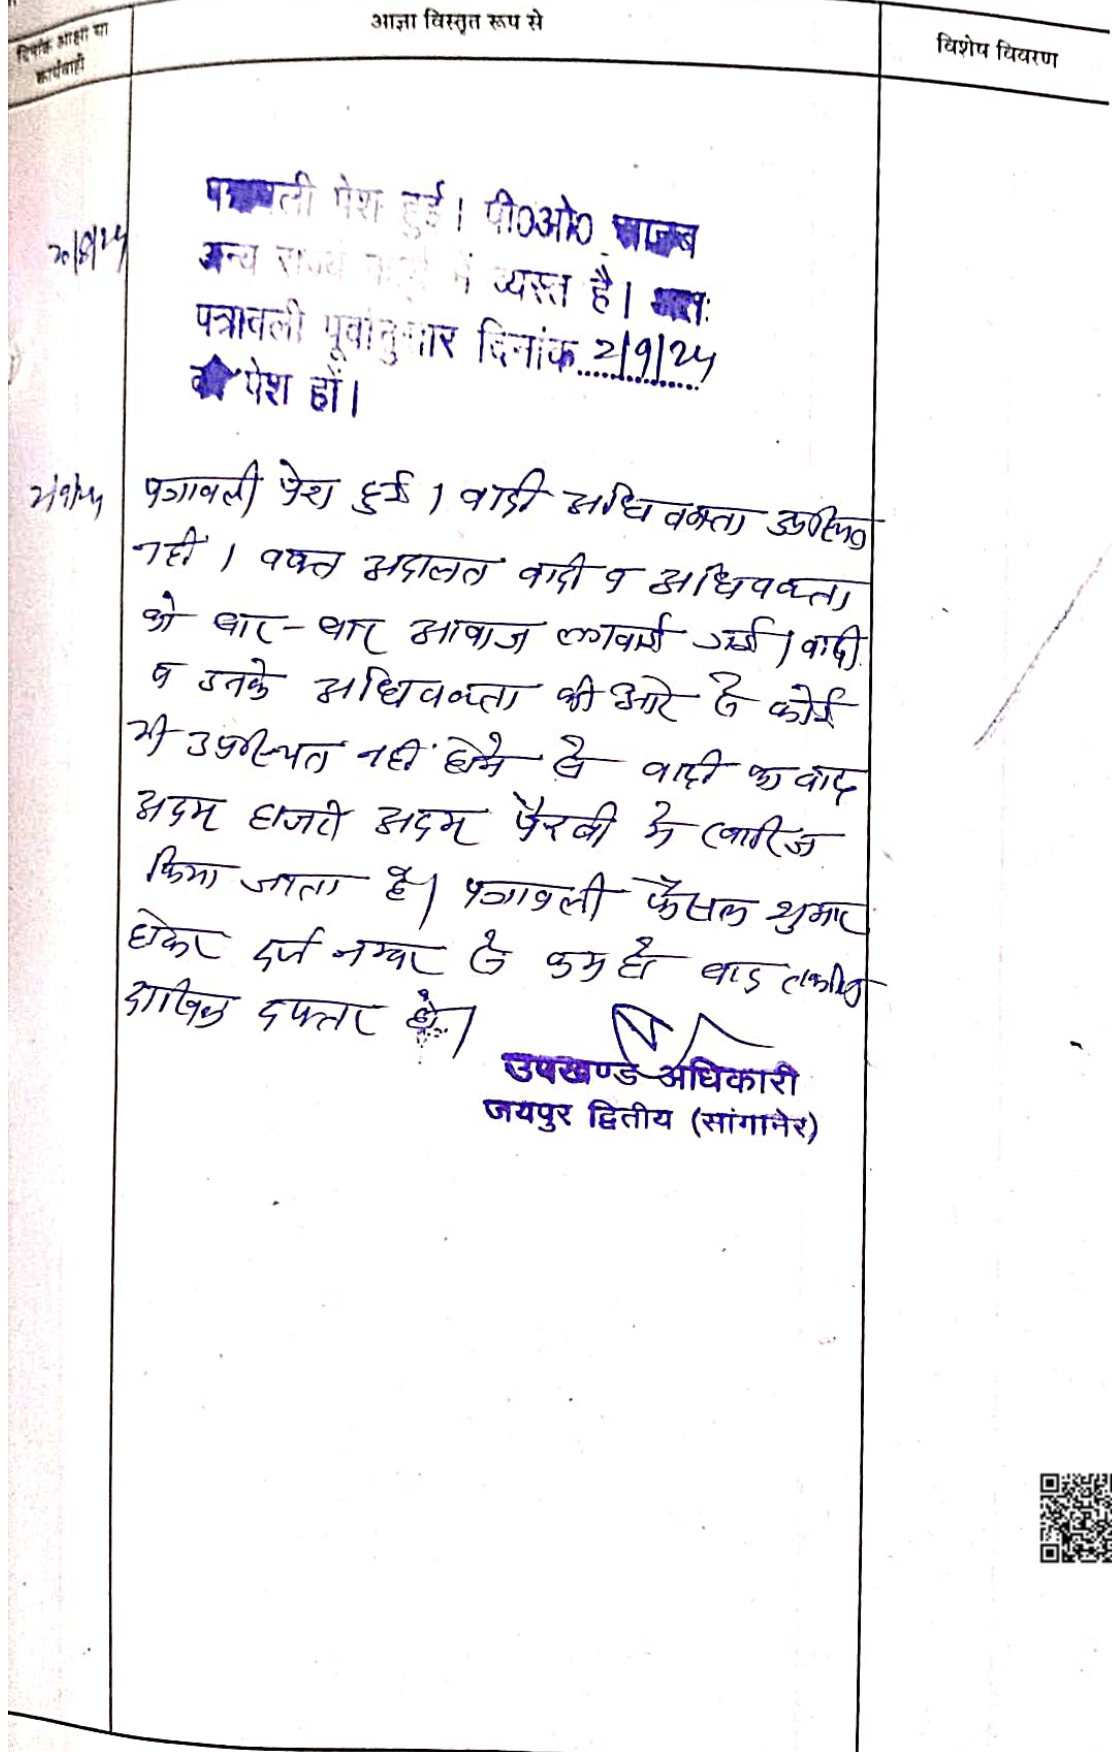 दिनांक आज्ञा या
कार्यवाही
आज्ञा विस्तृत रूप से
विशेष विवरण
पत्रावली पेश हुई। पी0ओ0 साहब
20/8/24
अन्य राज्य कार्य में व्यस्त है। अतः
पत्रावली पूर्वानुसार दिनांक 2/9/24
को पेश हों।
2/9/24
पत्रावली पेश हुई। वादी अधिवक्ता उपस्थित
नहीं। वक्त अदालत वादी व अधिवक्ता
को बार-बार आवाज लगवाई गई। वादी
व उनके अधिवक्ता की ओर से कोई
भी उपस्थित नहीं होने से वादी का वाद
अदम हाजरी अदम पैरवी में खारिज
किया जाता है। पत्रावली फैसल शुमार
होकर दर्ज नम्बर से कम हो बाद तकमील
दाखिल दफ्तर हो।
उपखण्ड अधिकारी
जयपुर द्वितीय (सांगानेर)